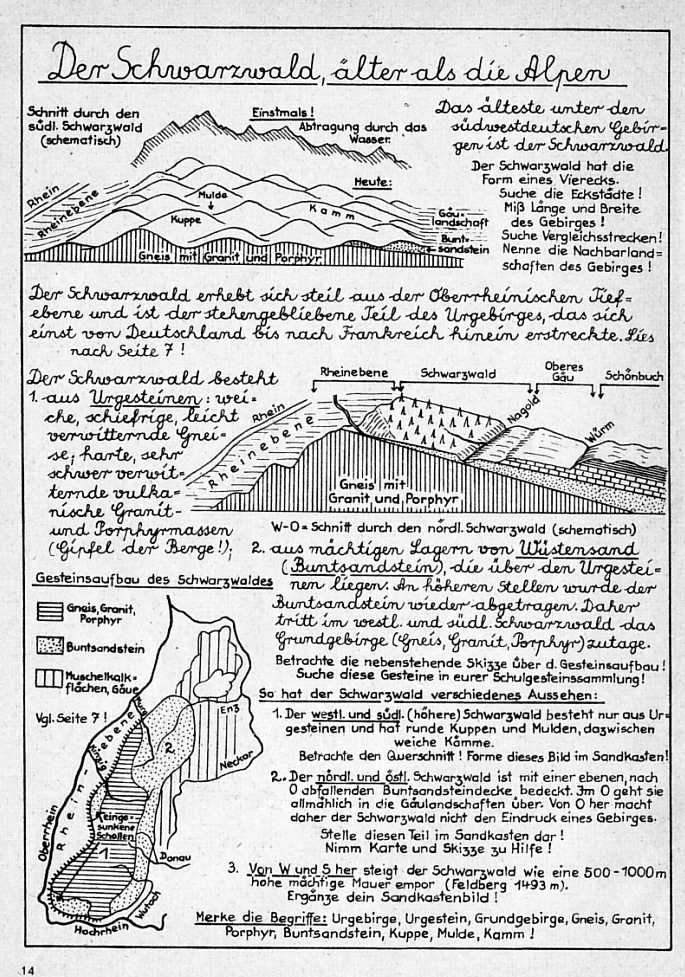 Der Schwarzwald, älter als die Alpen
Schnitt durch den
südl. Schwarzwald
(schematisch)
Einstmals!
Abtragung durch das
Wasser.
Das älteste unter den
südwestdeutschen Gebir-
gen ist der Schwarzwald.
Der Schwarzwald hat die
Form eines Vierecks.
Suche die Eckstädte!
Miß Länge und Breite
des Gebirges!
Suche Vergleichsstrecken!
Nenne die Nachbarland=
schaften des Gebirges!
Heute:
Rhein
Rheinebene
Mulde
Kuppe
Kamm
Gäu-
landschaft
Bunt-
sandstein
Gneis mit Granit und Porphyr
Der Schwarzwald erhebt sich steil aus der Oberrheinischen Tief=
ebene und ist der stehengebliebene Teil des Urgebirges, das sich
einst von Deutschland bis nach Frankreich hinein erstreckte. Lies
nach Seite 7!
Der Schwarzwald besteht
1. aus Urgesteinen: wei-
che, schiefrige, leicht
verwitternde Gnei-
se; harte, sehr
schwer verwit=
ternde vulka=
nische Granit-
und Porphyrmassen
(Gipfel der Berge!);
Rheinebene
Schwarzwald
Oberes
Gäu
Schönbuch
Rhein
Rheinebene
Nagold
Würm
Gneis mit
Granit, und Porphyr
W-O=Schnitt durch den nördl. Schwarzwald (schematisch)
2. aus mächtigen Lagern von Wüstensand
(Buntsandstein), die über den Urgestei=
nen liegen. An höheren Stellen wurde der
Buntsandstein wieder abgetragen. Daher
tritt im westl. und südl. Schwarzwald das
Grundgebirge (Gneis, Granit, Porphyr) zutage.
Betrachte die nebenstehende Skizze über d. Gesteinsaufbau!
Suche diese Gesteine in eurer Schulgesteinssammlung!
Gesteinsaufbau des Schwarzwaldes
Gneis, Granit,
Porphyr
Buntsandstein
Muschelkalk=
flächen, Gäue
Vgl. Seite 7!
Murg
Enz
Neckar
Kinzig
Rhein-ebene
Oberrhein
2
Reinge-
sunkene
Schollen
1
Donau
Wutach
Hochrhein
So hat der Schwarzwald verschiedenes Aussehen:
1. Der westl. und südl. (höhere) Schwarzwald besteht nur aus Ur-
gesteinen und hat runde Kuppen und Mulden, dazwischen
weiche Kämme.
Betrachte den Querschnitt! Forme dieses Bild im Sandkasten!
2. Der nördl. und östl. Schwarzwald ist mit einer ebenen, nach
O abfallenden Buntsandsteindecke bedeckt. Im O geht sie
allmählich in die Gäulandschaften über. Von O her macht
daher der Schwarzwald nicht den Eindruck eines Gebirges.
Stelle diesen Teil im Sandkasten dar!
Nimm Karte und Skizze zu Hilfe!
3. Von W und S her steigt der Schwarzwald wie eine 500-1000m
hohe mächtige Mauer empor (Feldberg 1493 m).
Ergänze dein Sandkastenbild!
Merke die Begriffe: Urgebirge, Urgestein, Grundgebirge, Gneis, Granit,
Porphyr, Buntsandstein, Kuppe, Mulde, Kamm!
14